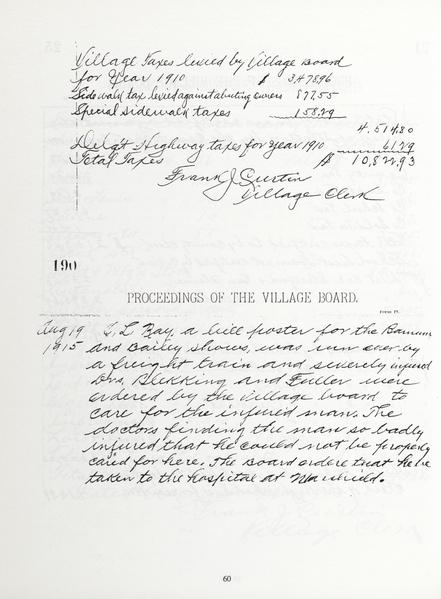 Village Taxes levied by Village Board
for Year 1910 $ 3,478.96
Sidewalk tax levied against abutting owners 877.55
Special sidewalk taxes 158.29
4,514.80
Delq't Highway taxes for Year 1910 61.29
Total Taxes $ 10,822.93
Frank J
Village Clerk
190
PROCEEDINGS OF THE VILLAGE BOARD.
Aug 19 L Ray, a bill poster for the Barnum
1915 and Bailey shows, was run over by
a freight train and severely injured
Drs. and Fuller were
ordered by the village board to
care for the injured man. The
doctors finding the man so badly
injured that he could not be properly
cared for here. The Board ordere that he be
taken to the hospital at
60